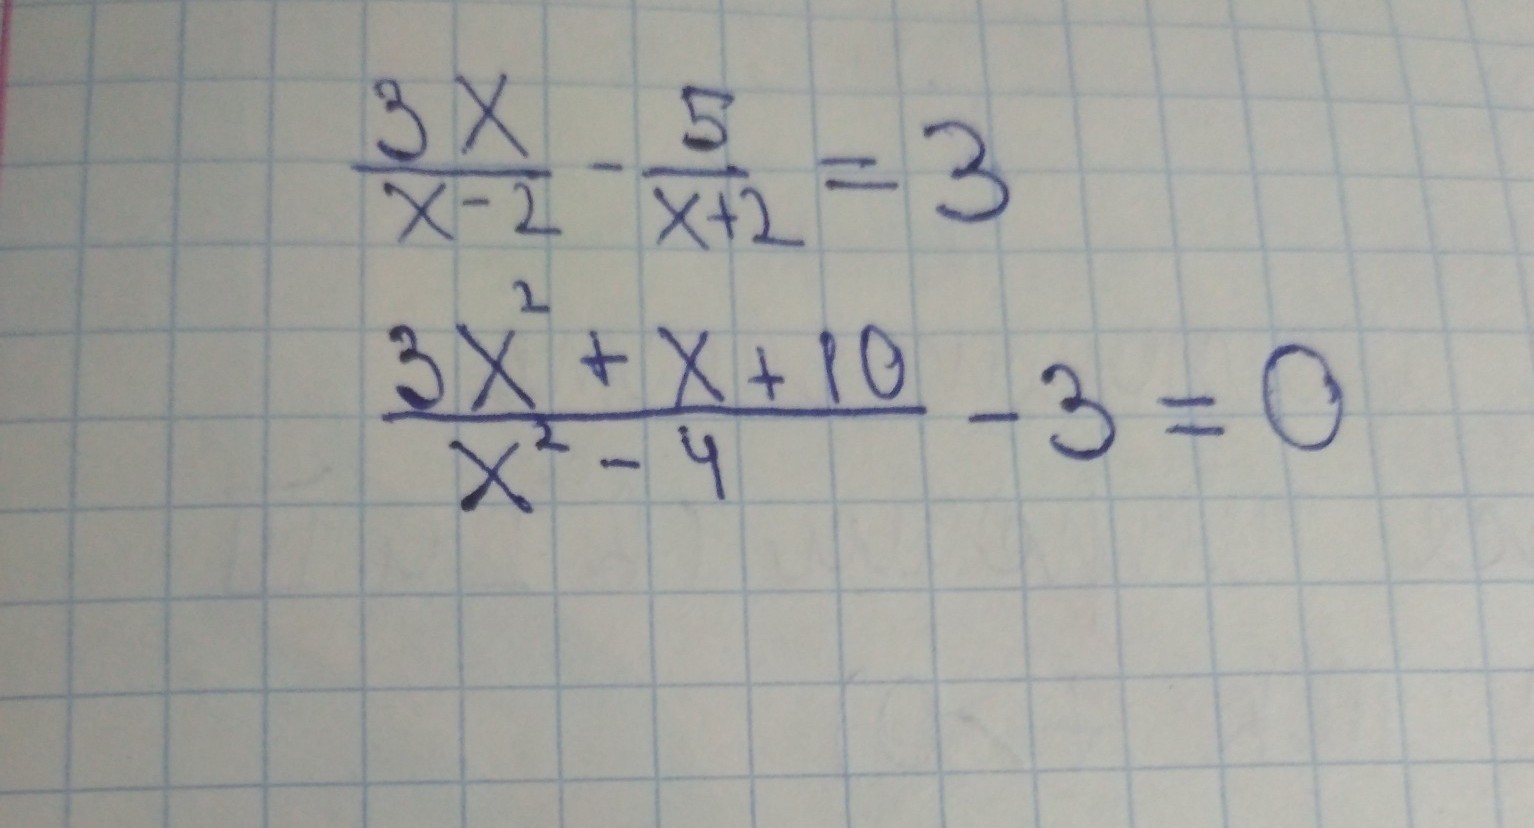 3x/(x-2) - 5/(x+2) = 3
(3x² + x + 10)/(x² - 4) - 3 = 0